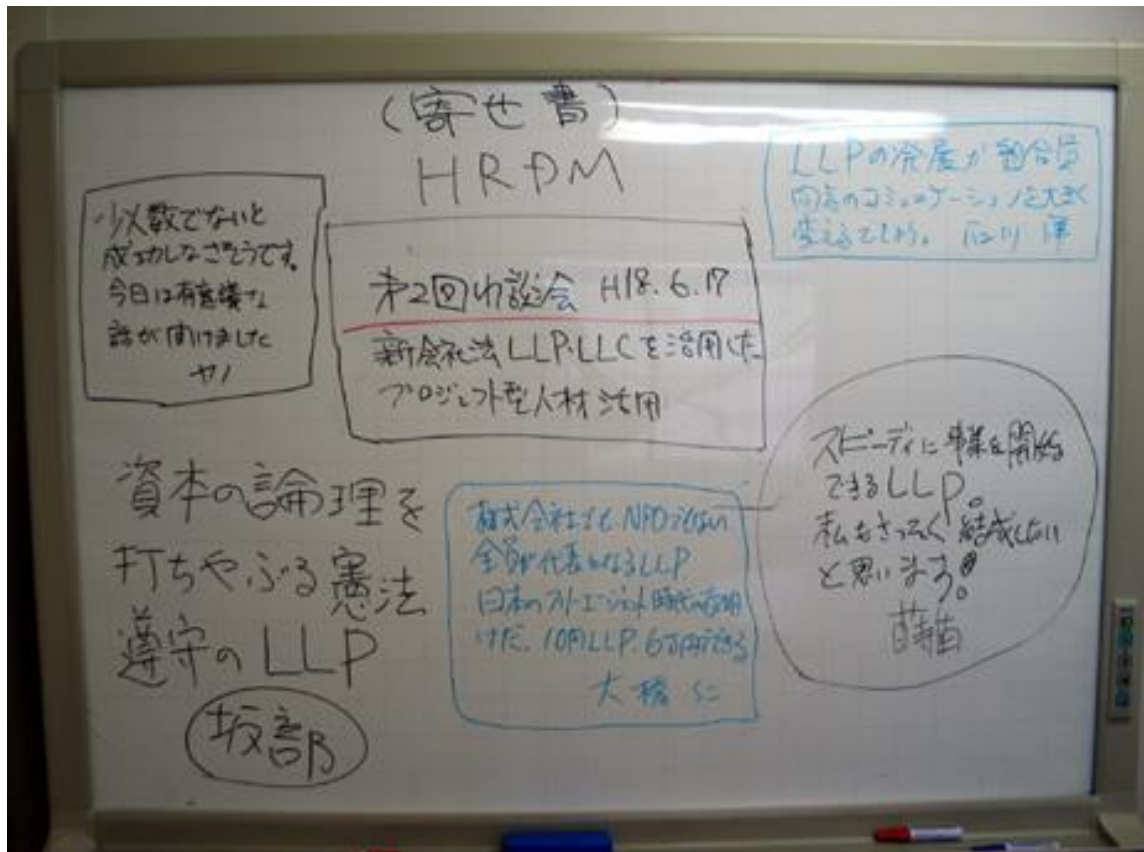 (寄せ書)
HRDM
少人数でないと
成功しなさそうです。
今日は有意義な
話が聞けました
ヤノ
第2回 談会 H18.6.17
新会社法LLP・LLCを活用した
プロジェクト型人材活用
LLPの発展が組合員
同志のコミュニケーションを大きく
変えるでしょう。 石川
資本の論理を
打ちやぶる憲法
遵守のLLP
坂部
株式会社でもNPOでもない
全員が代表となるLLP
日本のフリーエージェント時代の夜明
けだ、10円LLP、6万円できる
大橋 仁
スピーディに事業を開始
できるLLP。
私もさっそく結成したい
と思います!